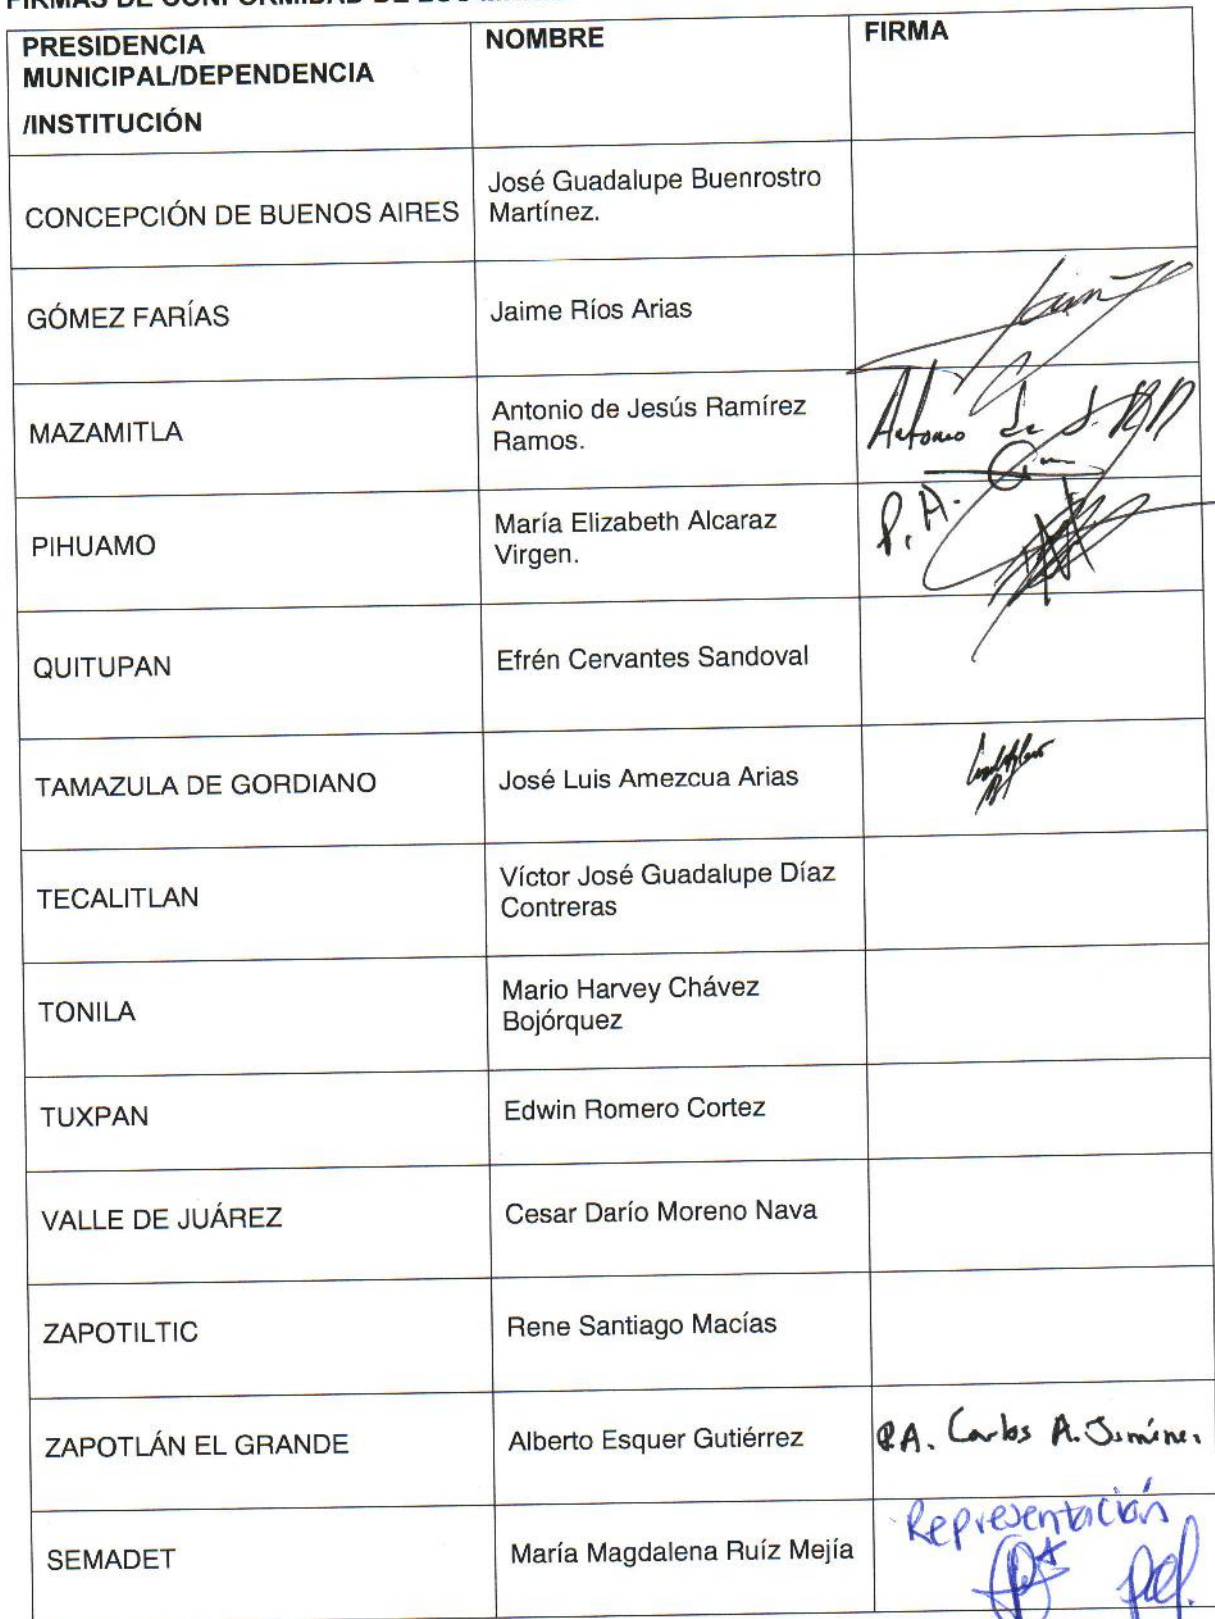 FIRMAS DE CONFORMIDAD DE LOS
PRESIDENCIA
MUNICIPAL/DEPENDENCIA
/INSTITUCIÓN
NOMBRE
FIRMA
CONCEPCIÓN DE BUENOS AIRES
José Guadalupe Buenrostro
Martínez.
GÓMEZ FARÍAS
Jaime Ríos Arias
MAZAMITLA
Antonio de Jesús Ramírez
Ramos.
Antonio de J. RR
PIHUAMO
María Elizabeth Alcaraz
Virgen.
P.A.
QUITUPAN
Efrén Cervantes Sandoval
TAMAZULA DE GORDIANO
José Luis Amezcua Arias
TECALITLAN
Víctor José Guadalupe Díaz
Contreras
TONILA
Mario Harvey Chávez
Bojórquez
TUXPAN
Edwin Romero Cortez
VALLE DE JUÁREZ
Cesar Darío Moreno Nava
ZAPOTILTIC
Rene Santiago Macías
ZAPOTLÁN EL GRANDE
Alberto Esquer Gutiérrez
P.A. Carlos A. Jiménez
SEMADET
María Magdalena Ruíz Mejía
Representación